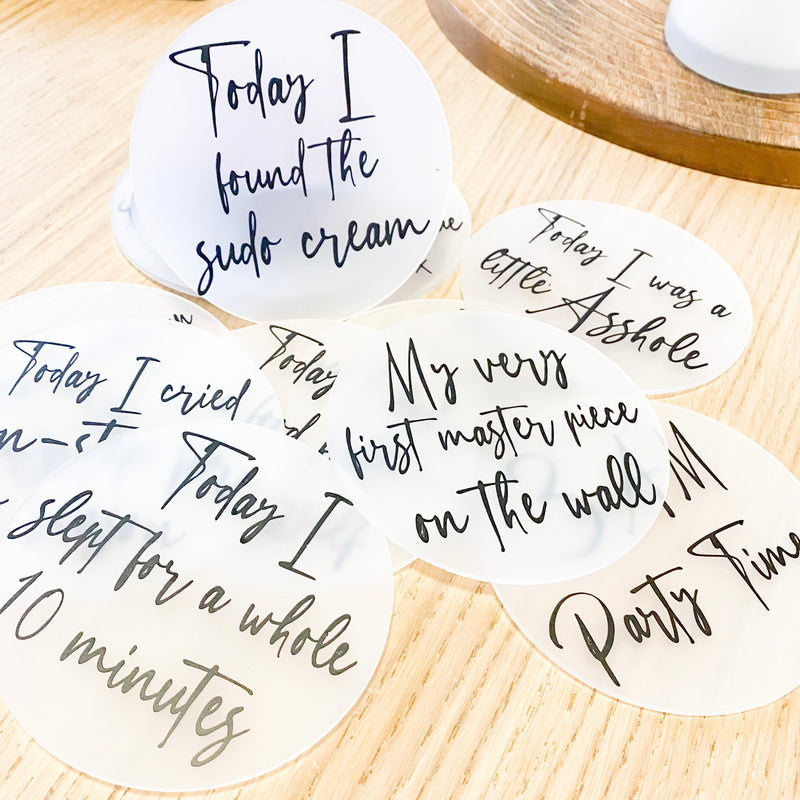 Today I
found the
sudo cream
Today I was a
little Asshole
Today I cried
Today
My very
first master piece
on the wall
Today I
slept for a whole
10 minutes
Party Time